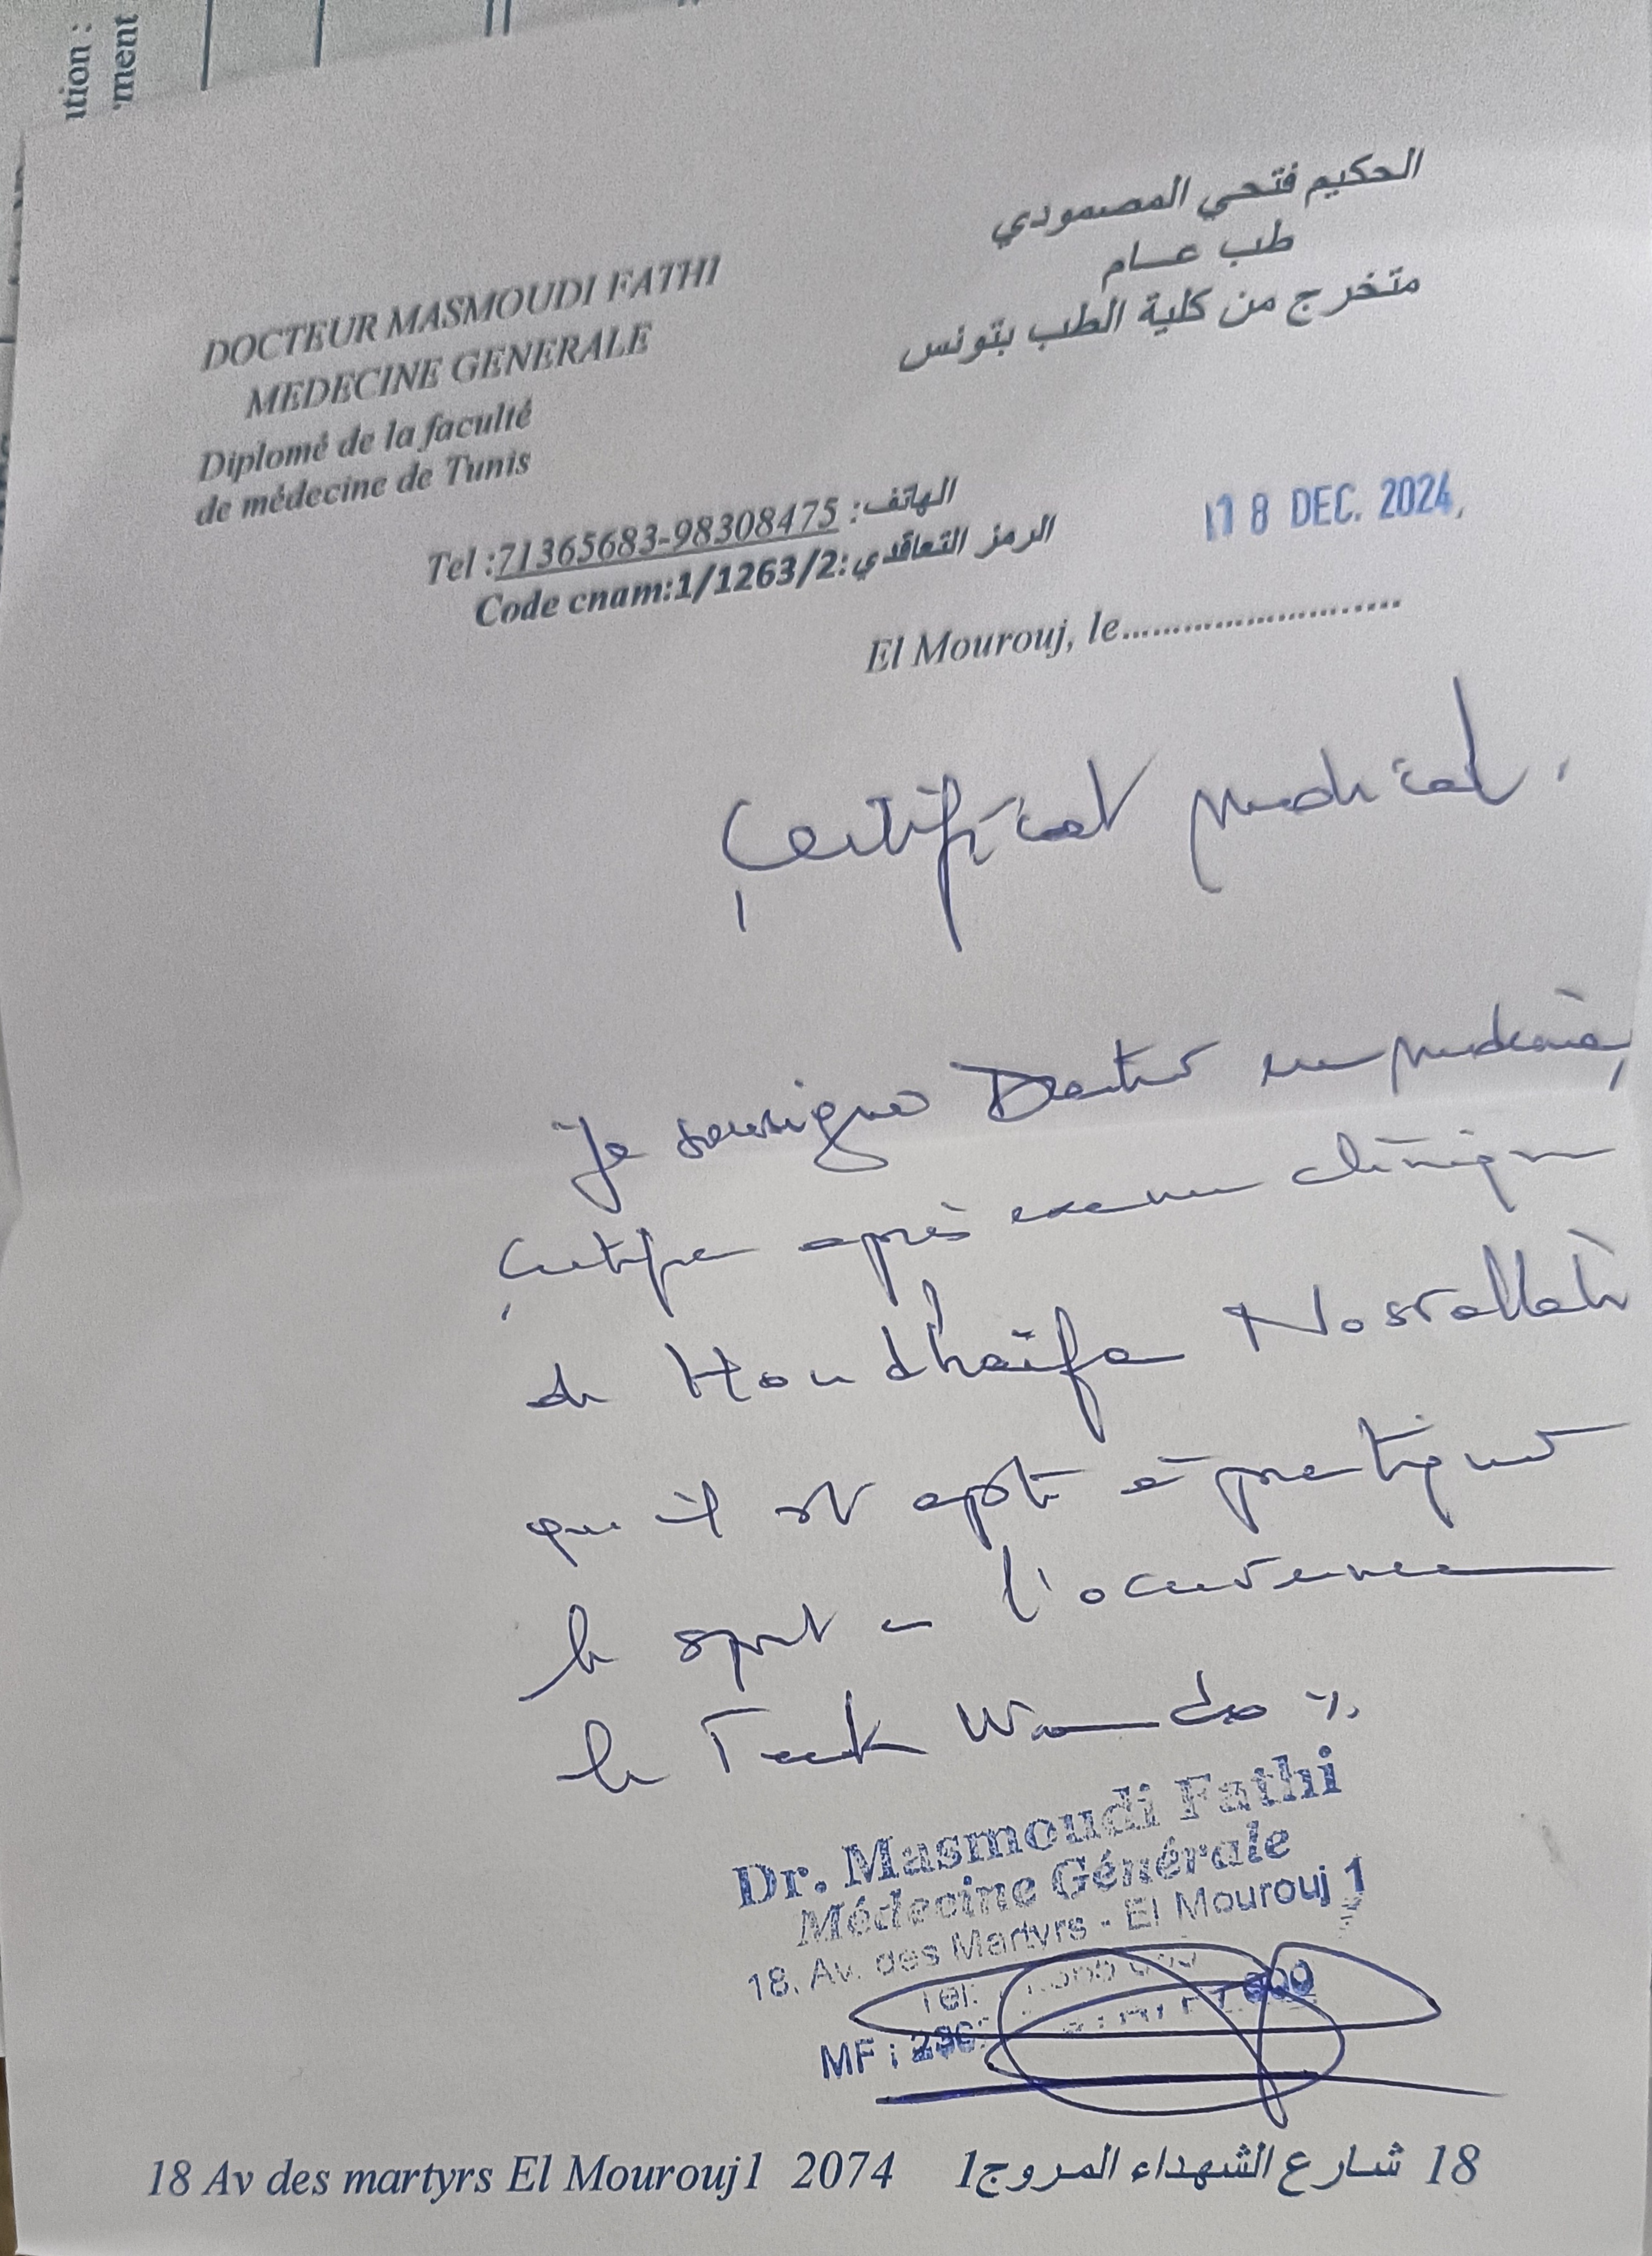 ution :
ment
الحكيم فتحي المصمودي
طب عـــام
متخرج من كلية الطب بتونس
DOCTEUR MASMOUDI FATHI
MEDECINE GENERALE
Diplomé de la faculté
de médecine de Tunis
Tel :71365683-98308475 :الهاتف
Code cnam:1/1263/2:الرمز التعاقدي
18 DEC. 2024
El Mourouj, le..........................
Certificat medical.
Je soussigné Docteur en médecine,
Certifie après examen clinique
de Houdhaifa Nasrallah
qu'il est apte à pratiquer
le sport en l'occurence
le Taek Wando %.
Dr. Masmoudi Fathi
Médecine Générale
18, Av. des Martyrs - El Mourouj 1
Tel:
MF :
18 Av des martyrs El Mourouj1 2074
18 شارع الشهداء المروج1